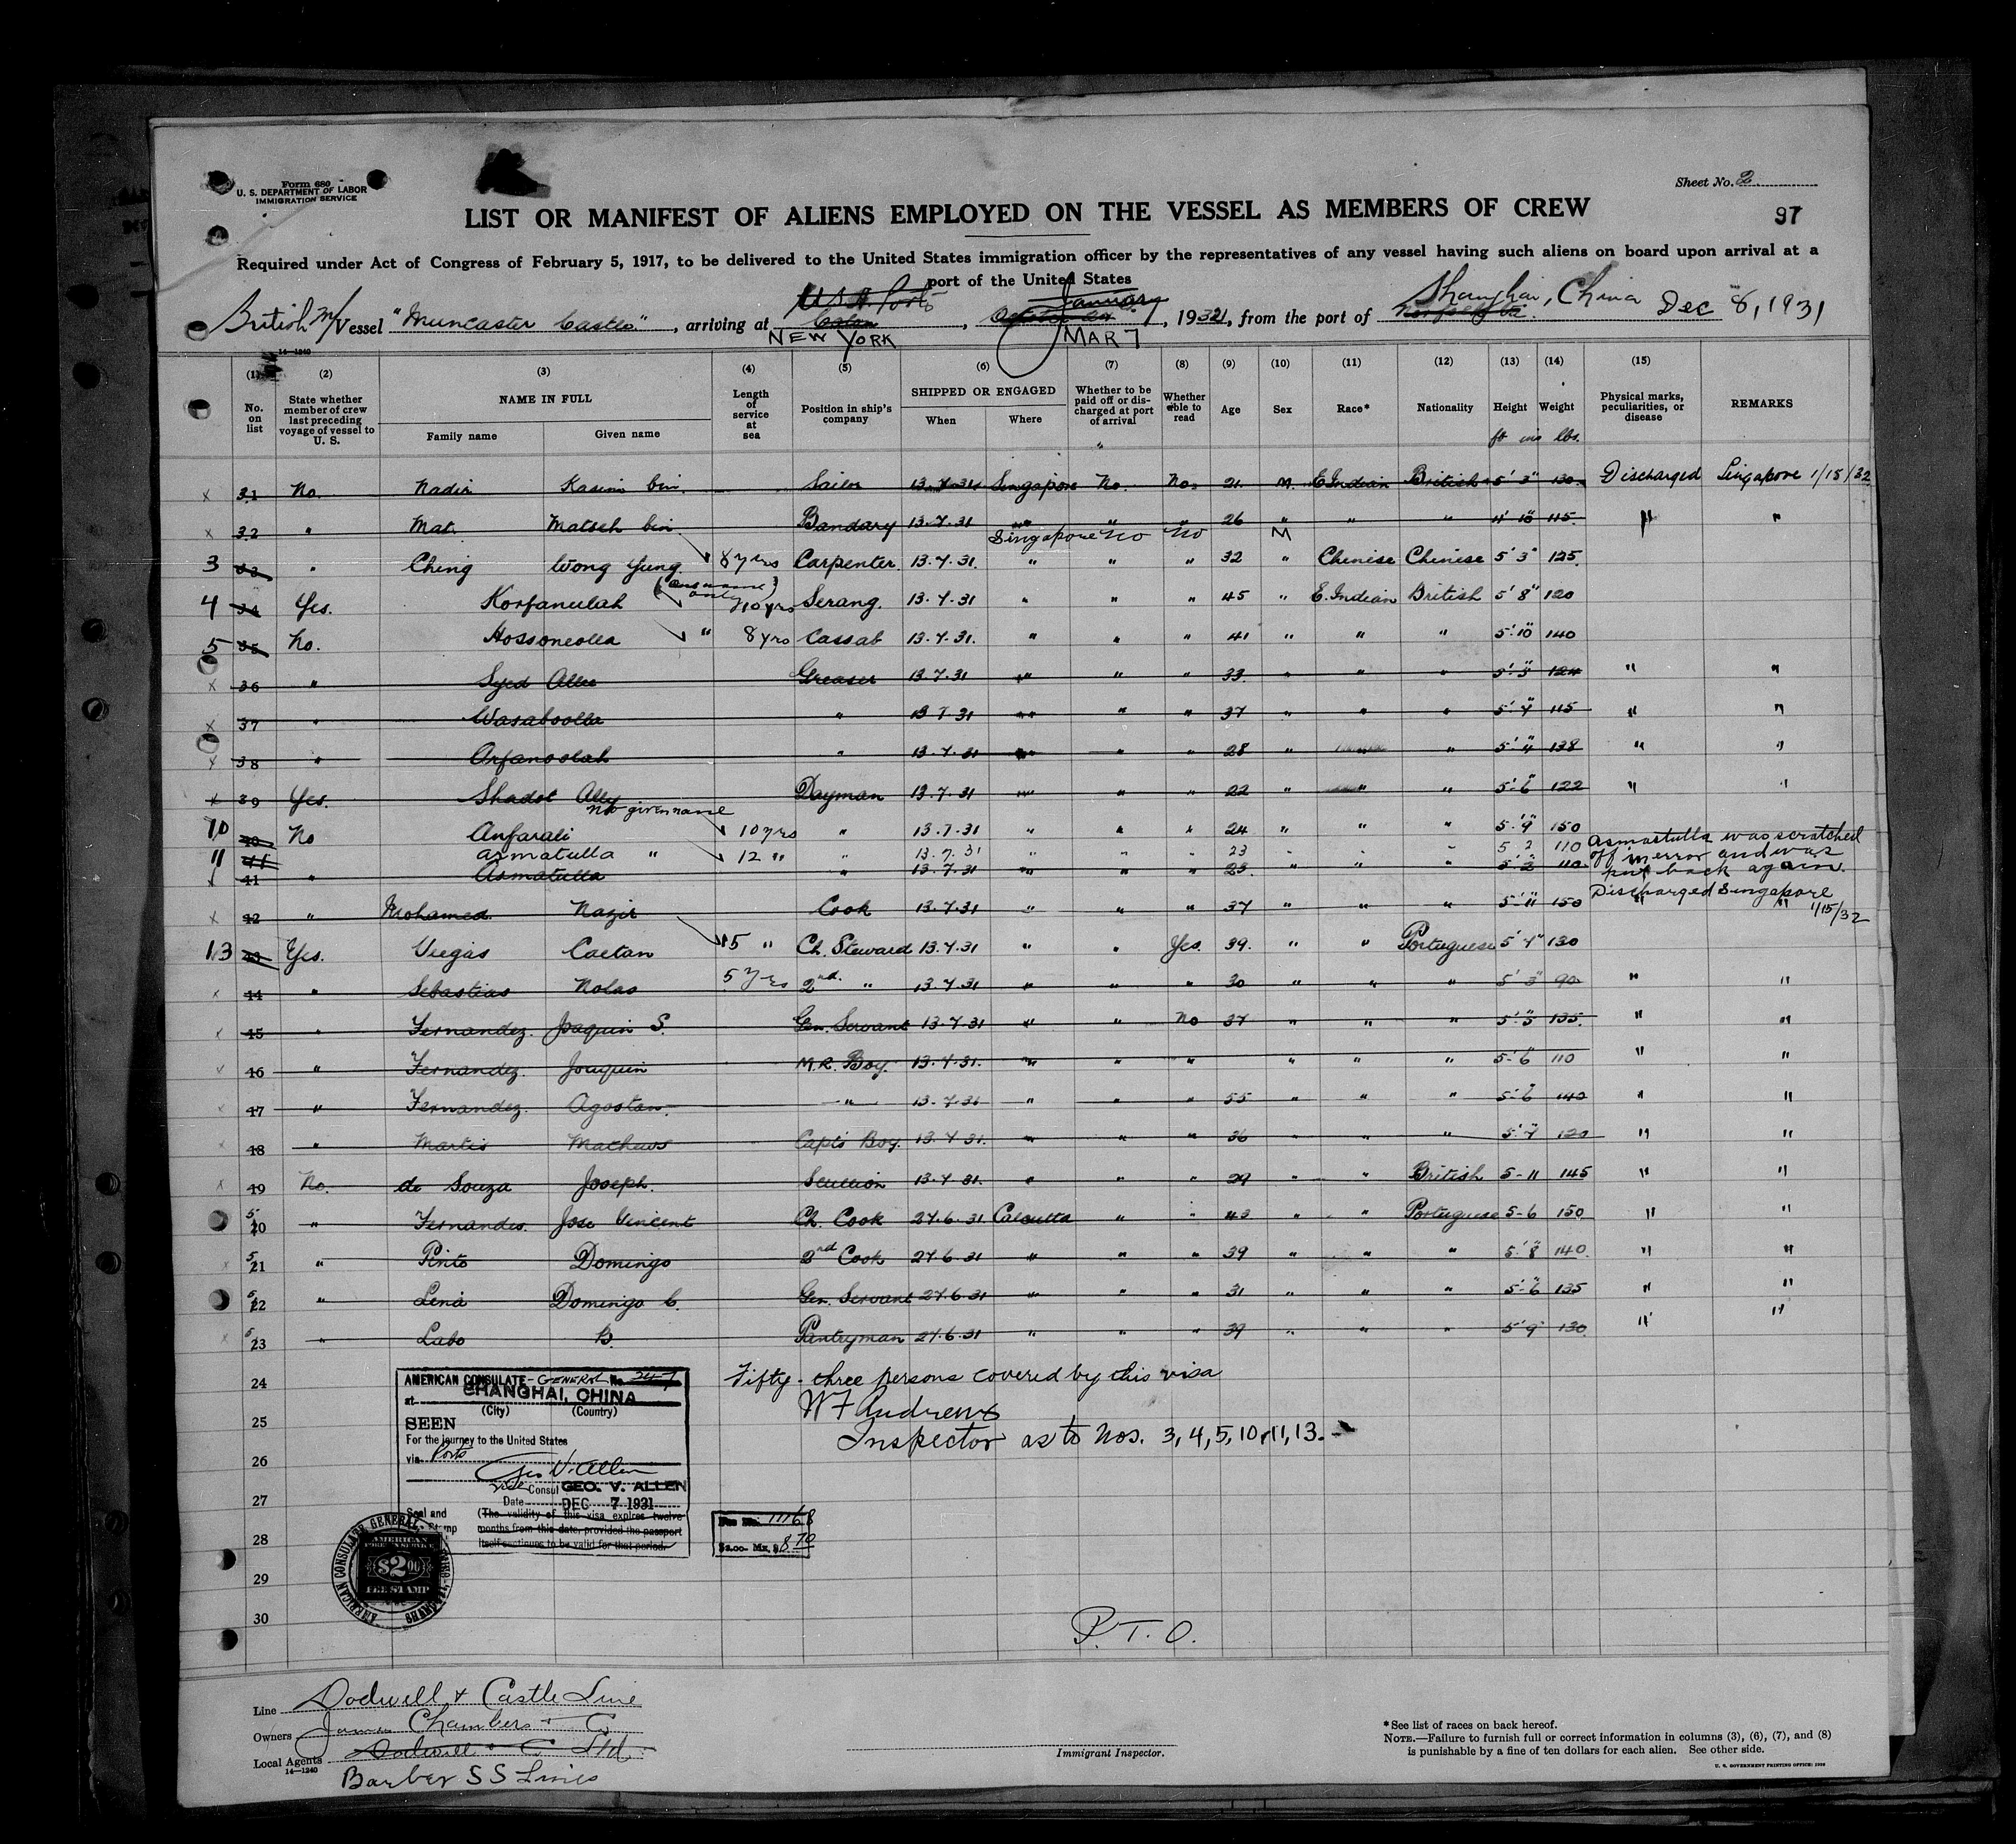 Form 680
U. S. DEPARTMENT OF LABOR
IMMIGRATION SERVICE
Sheet No. 2
LIST OR MANIFEST OF ALIENS EMPLOYED ON THE VESSEL AS MEMBERS OF CREW
97
Required under Act of Congress of February 5, 1917, to be delivered to the United States immigration officer by the representatives of any vessel having such aliens on board upon arrival at a
port of the United States
U.S.A. Ports January Shanghai, China Dec 8, 1931
British M/Vessel "Muncaster Castle", arriving at Colon, 1932, from the port of Norfolk Va
NEW YORK MAR 7
14—1240
(1) (2) (3) (4) (5) (6) (7) (8) (9) (10) (11) (12) (13) (14) (15)
No. on list
State whether member of crew last preceding voyage of vessel to U. S.
NAME IN FULL
Family name Given name
Length of service at sea
Position in ship's company
SHIPPED OR ENGAGED
When Where
Whether to be paid off or discharged at port of arrival
Whether able to read
Age Sex Race* Nationality Height Weight
ft ins lbs.
Physical marks, peculiarities, or disease
REMARKS
31 No. Nadir Kasim bin Sailor 13.7.31 Singapore No. No. 21 M. E. Indian British 5' 3" 130 Discharged Singapore 1/15/32
32 " Mat. Matseh bin Bandary 13.7.31 " " " 26 " " " 4' 10" 115 " "
Singapore No No M
3 33 " Ching Wong Yung 8 yrs Carpenter 13.7.31 " " " 32 " Chinese Chinese 5' 3" 125
(one name only)
4 34 Yes. Korfanulah 10 yrs Serang. 13.7.31 " " " 45 " E. Indian British 5' 8" 120
5 35 No. Hossoneolla " 8 yrs Cassab 13.7.31 " " " 41 " " " 5' 10" 140
36 " Syed Allee Greaser 13.7.31 " " " 33 " " " 5' 3" 124 " "
37 " Wasaboolla " 13.7.31 " " " 37 " " " 5' 4" 115 " "
38 " Arfanoolah " 13.7.31 " " " 28 " " " 5' 4" 138 " "
39 Yes. Shadot Ally Dayman 13.7.31 " " " 22 " " " 5' 6" 122 " "
No given name
10 40 No Anfarali 10 yrs " 13.7.31 " " " 24 " " " 5' 9" 150
11 41 Asmatulla " 12 " " 13.7.31 " " " 23 " " " 5 2 110 Asmatulla was scratched
off in error and was
put back again.
41 " Asmatulla " 13.7.31 " " " 23 " " " 5' 2" 110
Discharged Singapore
1/15/32
42 " Mohamed Nazir Cook 13.7.31 " " " 37 " " " 5' 11" 150 " "
13 43 Yes. Viegas Caetan 15 " Ch. Steward 13.7.31 " " Yes. 39 " " Portuguese 5' 4" 130
44 " Sebastiao Nolas 5 yrs 2nd " 13.7.31 " " " 30 " " " 5' 3" 90 " "
45 " Fernandez Joaquin S. Gen. Servant 13.7.31 " " No 37 " " " 5' 5" 135 " "
46 " Fernandez Jouquin M.R. Boy. 13.7.31 " " " " " " 5' 6" 110 " "
47 " Fernandez Agostan " 13.7.31 " " " 55 " " " 5' 6" 140 " "
48 " Martis Mathews Capt's Boy. 13.7.31 " " " 36 " " " 5' 4" 120 " "
49 No. de Souza Joseph. Scullion 13.7.31 " " " 29 " " British 5-11 145 " "
50 " Fernandes. Jose Vincent Ch. Cook 27.6.31 Calcutta " " 43 " " Portuguese 5-6 150 " "
51 " Pinto Domingo 2nd Cook 27.6.31 " " " 39 " " " 5' 8" 140 " "
52 " Lena Domingo C. Gen. Servant 27.6.31 " " " 31 " " " 5' 6" 135 " "
53 " Lubo B. Pantryman 27.6.31 " " " 39 " " " 5' 9" 130 " "
24 Fifty-three persons covered by this visa
W F Andrews
25 Inspector as to Nos. 3, 4, 5, 10, 11, 13.
26
27
28
29
30
AMERICAN CONSULATE-GENERAL No. 247
at SHANGHAI, CHINA
(City) (Country)
SEEN
For the journey to the United States
via Ports
Geo V. Allen
Vice Consul GEO. V. ALLEN
Date DEC 7 1931
Seal and Stamp
(The validity of this visa expires twelve
months from this date, provided the passport
itself continues to be valid for that period.
AMERICAN CONSULATE GENERAL
AMERICAN
FOREIGN SERVICE
$2.00
FEE STAMP
Fee No. 11168
$2.00 Mx. $8.70
P. T. O.
Line Dodwell & Castle Line
Owners James Chambers & Co
Local Agents Dodwell & Co Ltd.
14—1240
Barber SS Lines
Immigrant Inspector.
*See list of races on back hereof.
NOTE.—Failure to furnish full or correct information in columns (3), (6), (7), and (8)
is punishable by a fine of ten dollars for each alien. See other side.
U. S. GOVERNMENT PRINTING OFFICE: 1929